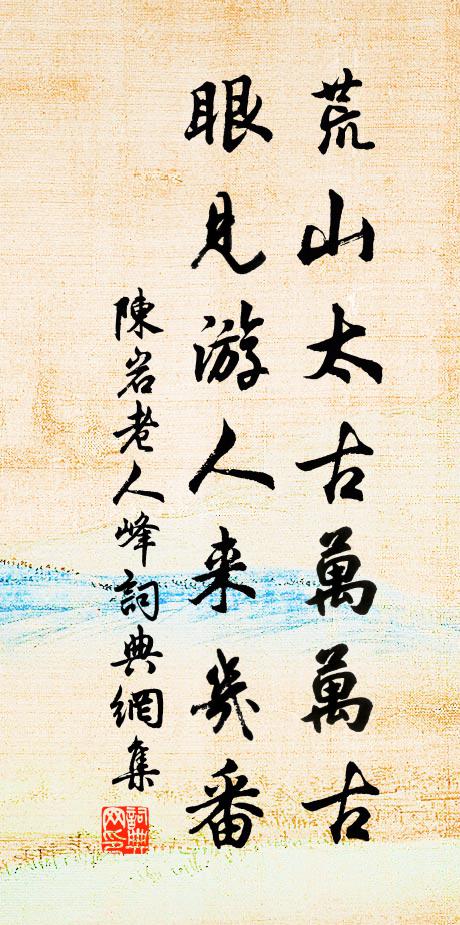 荒山太古萬萬古
眼見游人来幾番
陳岩老人峰詞典網集
詞典网印